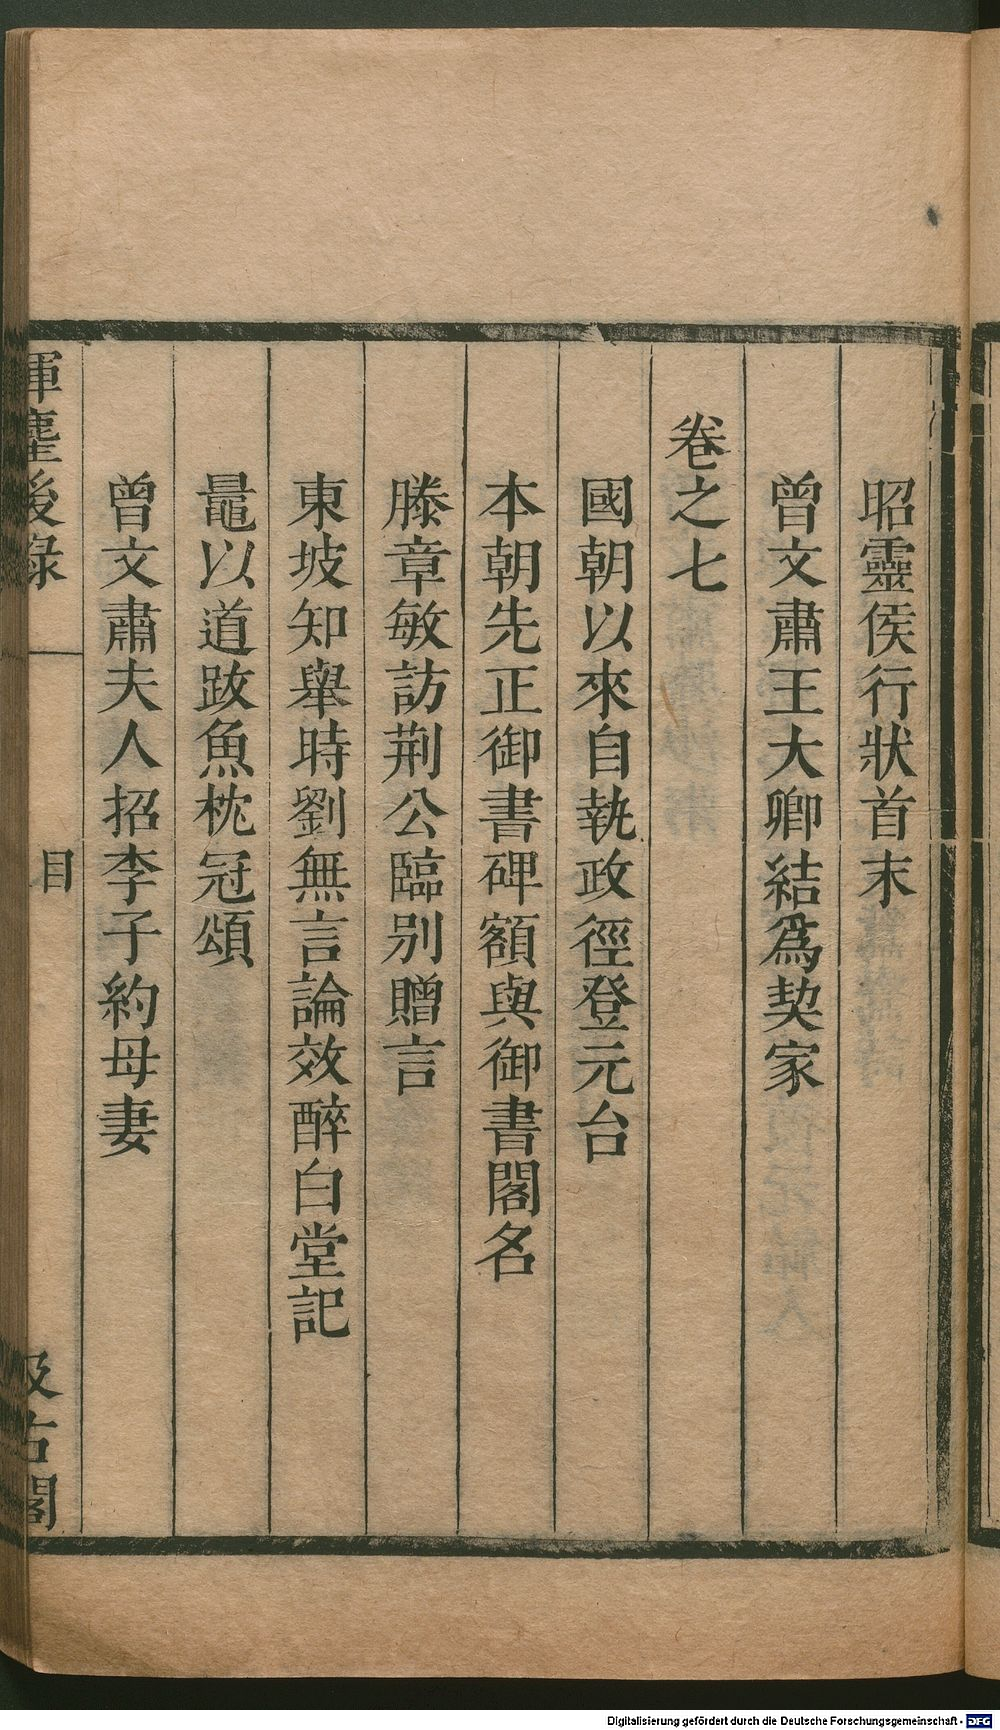 昭靈侯行狀首末
曾文肅王大卿結爲契家
卷之七
國朝以來自執政徑登元台
本朝先正御書碑額與御書閣名
滕章敏訪荆公臨别贈言
東坡知舉時劉無言論效醉白堂記
鼂以道跋魚枕冠頌
曾文肅夫人招李子約母妻
揮麈後錄
目
汲古閣
Digitalisierung gefördert durch die Deutsche Forschungsgemeinschaft - DFG